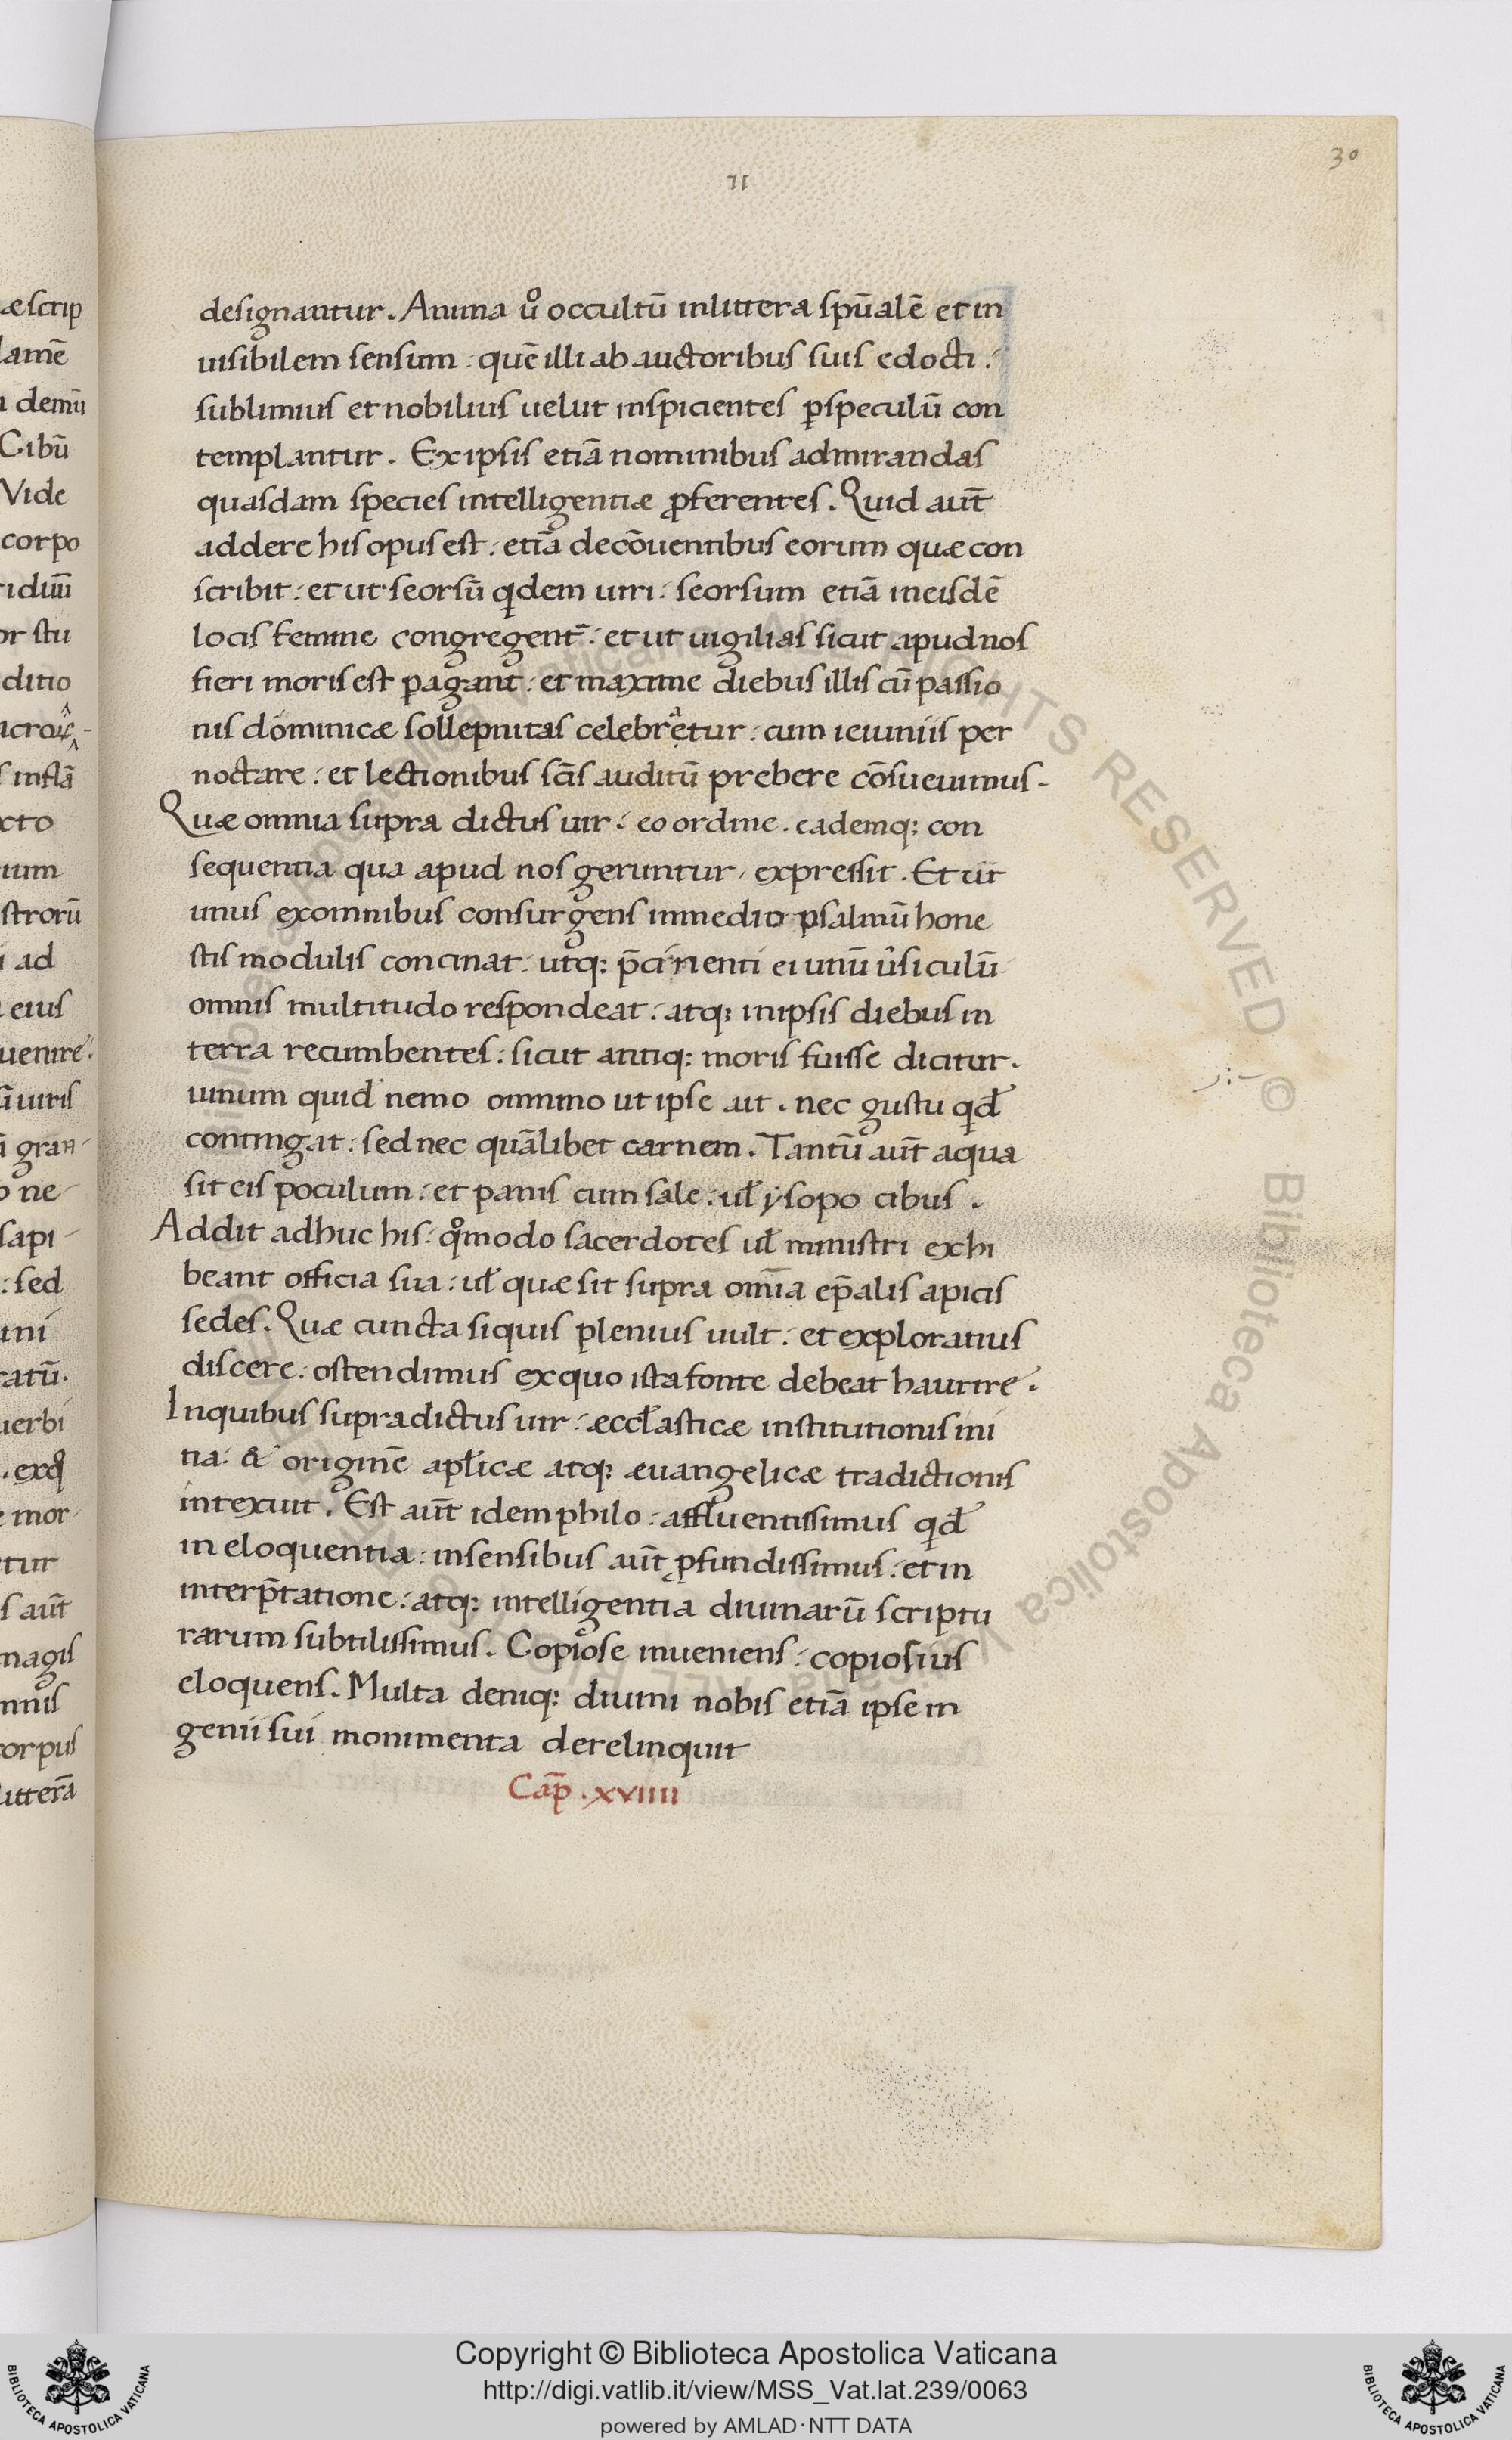 30
II
designantur. Anima u&#x366;o occultū in littera sp̄ualē et in
uisibilem sensum : quē illi ab auctoribus suis edocti :
sublimius et nobilius uelut inspicientes ꝑ speculū con
templantur. Ex ipsis etiā nominibus admirandas
quasdam species intelligentiæ ꝓferentes. Quid aut̄
addere his opus est : etiā de cōuentibus eorum quæ con
scribit : et ut seorsū qͥdem uiri : seorsum etiā in eisdē
locis femine congregent&#x304; : et ut uigilias sicut apud nos
fieri moris est pagant : et maxime diebus illis cū passio
nis dominicæ sollepnitas celebretur : cum ieiuniis per
noctare : et lectionibus sc̄is auditū prebere cōsueuimus.
Quæ omnia supra dictus uir : eo ordine . eademq; con
sequentia qua apud nos geruntur, expressit. Et ut
unus ex omnibus consurgens in medio psalmū hone
stis modulis concinat : utq; p̄cinenti ei unū u̓siculū
omnis multitudo respondeat : atq; in ipsis diebus in
terra recumbentes : sicut antiq; moris fuisse dicitur.
uinum quid nemo omnino ut ipse ait . nec gustu qͥdē
contingat : sed nec quālibet carnem. Tantū aut̄ aqua
sit eis poculum : et panis cum sale : ul̄ ysopo cibus .
Addit adhuc his : qͦmodo sacerdotes ul̄ ministri exhi
beant officia sua : ul̄ quæ sit supra omīa ep̄alis apicis
sedes. Quæ cuncta siquis plenius uult : et exploratius
discere : ostendimus ex quo ista fonte debeat haurire.
In quibus supradictus uir : æccl̄asticæ institutionis ini
tia : & originē apl̄icæ atq; æuangelicæ tradictionis
intexuit. Est aut̄ idem philo : affluentissimus qͥdē
in eloquentia : in sensibus aut̄ ꝓfundissimus : et in
interp̄tatione : atq; intelligentia diuinarū scriptu
rarum subtilissimus. Copiose inueniens : copiosius
eloquens. Multa deniq; diuini nobis etiā ipse in
genii sui monimenta derelinquit
Cap̄ . xviiii
æ scrip
lamē
demū
Cibū
Vide
corpo
or stu
ditio
s inflā
cto
ium
strorū
i ad
eius
uenire.
uiris
gran
ne
sapi
: sed
uni
ratū.
uerbi
. exqͦ
mor
tur
s aut̄
magis
mnis
corpus
litterā
Biblioteca Apostolica Vaticana ALL RIGHTS RESERVED ©
Copyright © Biblioteca Apostolica Vaticana
http://digi.vatlib.it/view/MSS_Vat.lat.239/0063
powered by AMLAD･NTT DATA
BIBLIOTECA APOSTOLICA VATICANA
BIBLIOTECA APOSTOLICA VATICANA